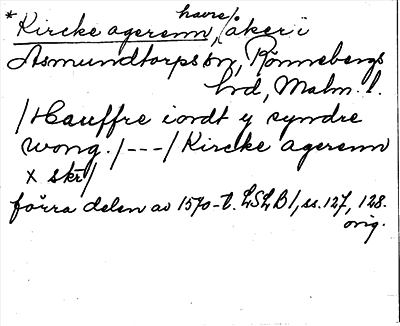 *Kircke agerenn, havre/åker i
Asmundtorps sn, Rönnebergs
hd, Malm. l.
/Hauffre iordt y syndre
wong./---/Kircke agerenn
x skr/
förra delen av 1570-t. LSLB1, ss. 127, 128.
orig.